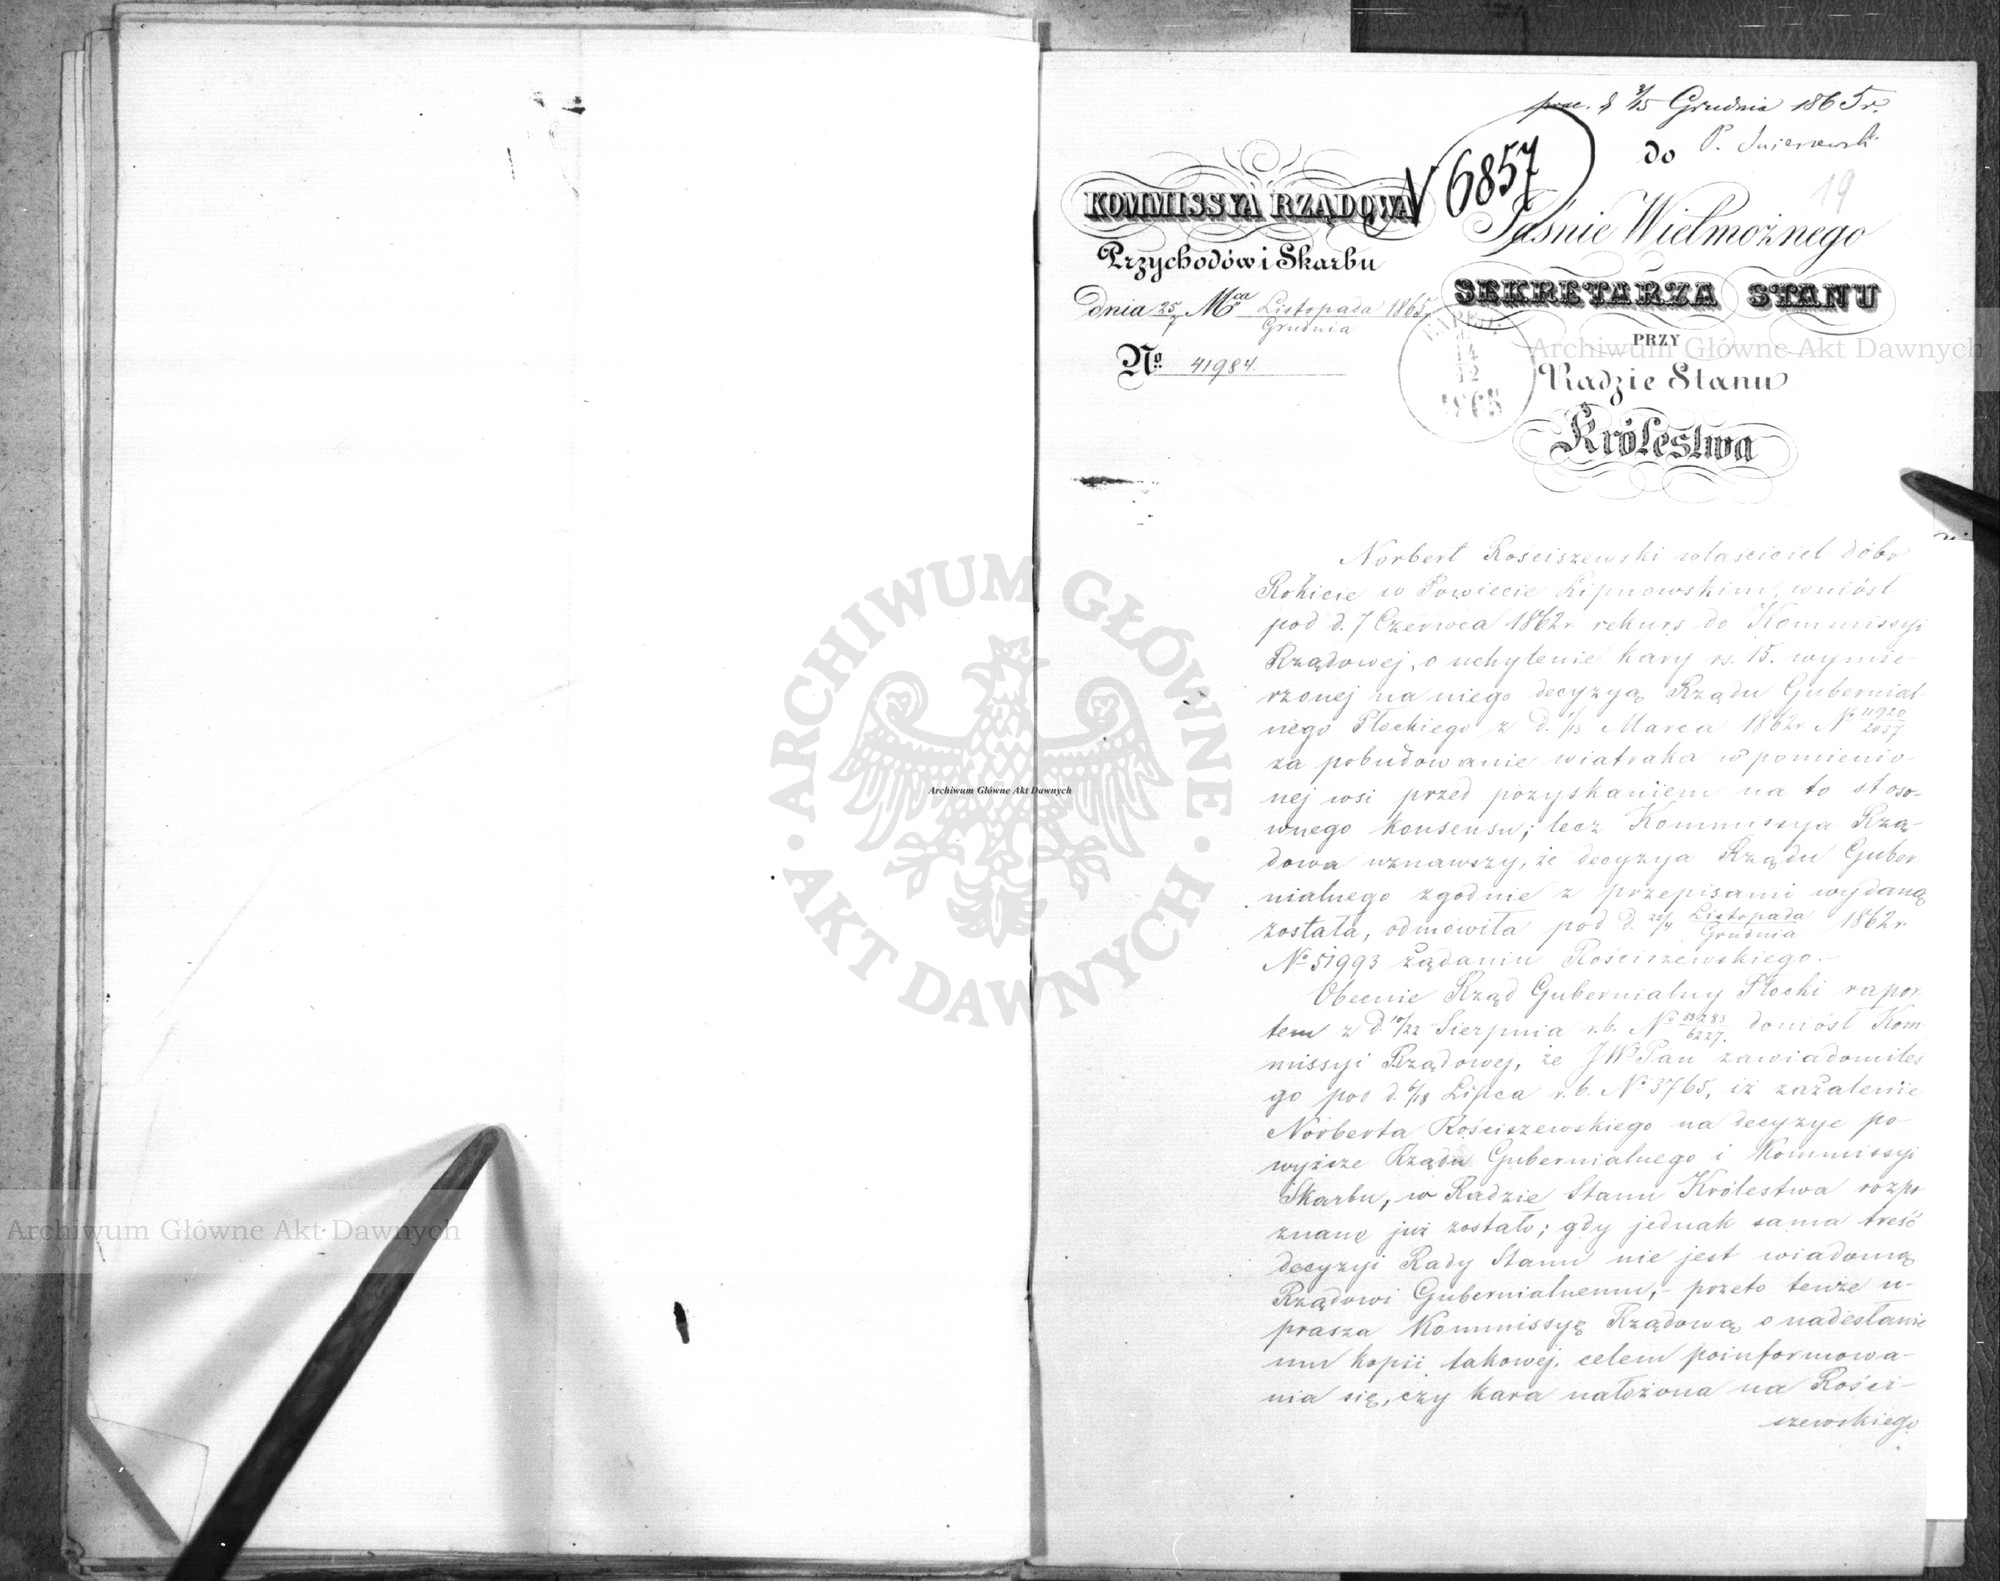 prez. d 3/15 Grudnia 1865 r.
do P.
19
N 6857
KOMMISSYA RZĄDOWA
Przychodów i Skarbu
dnia 25/7 Mca Listopada/Grudnia 1865 r.
No 41984.
Jaśnie Wielmożnego
SEKRETARZA STANU
PRZY
Radzie Stanu
Królestwa
14
12
1865
Norbert Rościszewski właściciel dóbr
Rokicie w Powiecie Lipnowskim, wniósł
pod d. 7 Czerwca 1862 r rekurs do Kommissyi
Rządowej, o uchylenie kary rs. 15. wymie-
rzonej na niego decyzyą Rządu Gubernial-
nego Płockiego z d. 1/13 Marca 1862 r No 11920/2057
za pobudowanie wiatraka w pomienio-
nej wsi przed pozyskaniem na to stoso-
wnego konsensu; lecz Kommissya Rzą-
dowa uznawszy, że decyzya Rządu Guber
nialnego zgodnie z przepisami wydaną
została, odmówiła pod d. 22/4 Listopada/Grudnia 1862 r
No 51993 żądaniu Rościszewskiego.-
Obecnie Rząd Gubernialny Płocki rapor-
tem z d. 10/22 Sierpnia r. b. No 53283/6227. doniósł Kom-
missyi Rządowej, że JW Pan zawiadomiłeś
go pod d. 6/18 Lipca r. b. No 3765, iż zażalenie
Norberta Rościszewskiego na decyzye po-
wyższe Rządu Gubernialnego i Kommissyi
Skarbu, w Radzie Stanu Królestwa rozpo
znane już zostało; gdy jednak sama treść
decyzyi Rady Stanu nie jest wiadomą
Rządowi Gubernialnemu,- przeto tenże u-
prasza Kommissyę Rządową o nadesłanie
mu kopii takowej, celem poinformowa-
nia się, czy kara nałożona na Rości-
szewskiego
Archiwum Główne Akt Dawnych
Archiwum Główne Akt Dawnych
Archiwum Główne Akt Dawnych
ARCHIWUM GŁÓWNE · AKT DAWNYCH ·